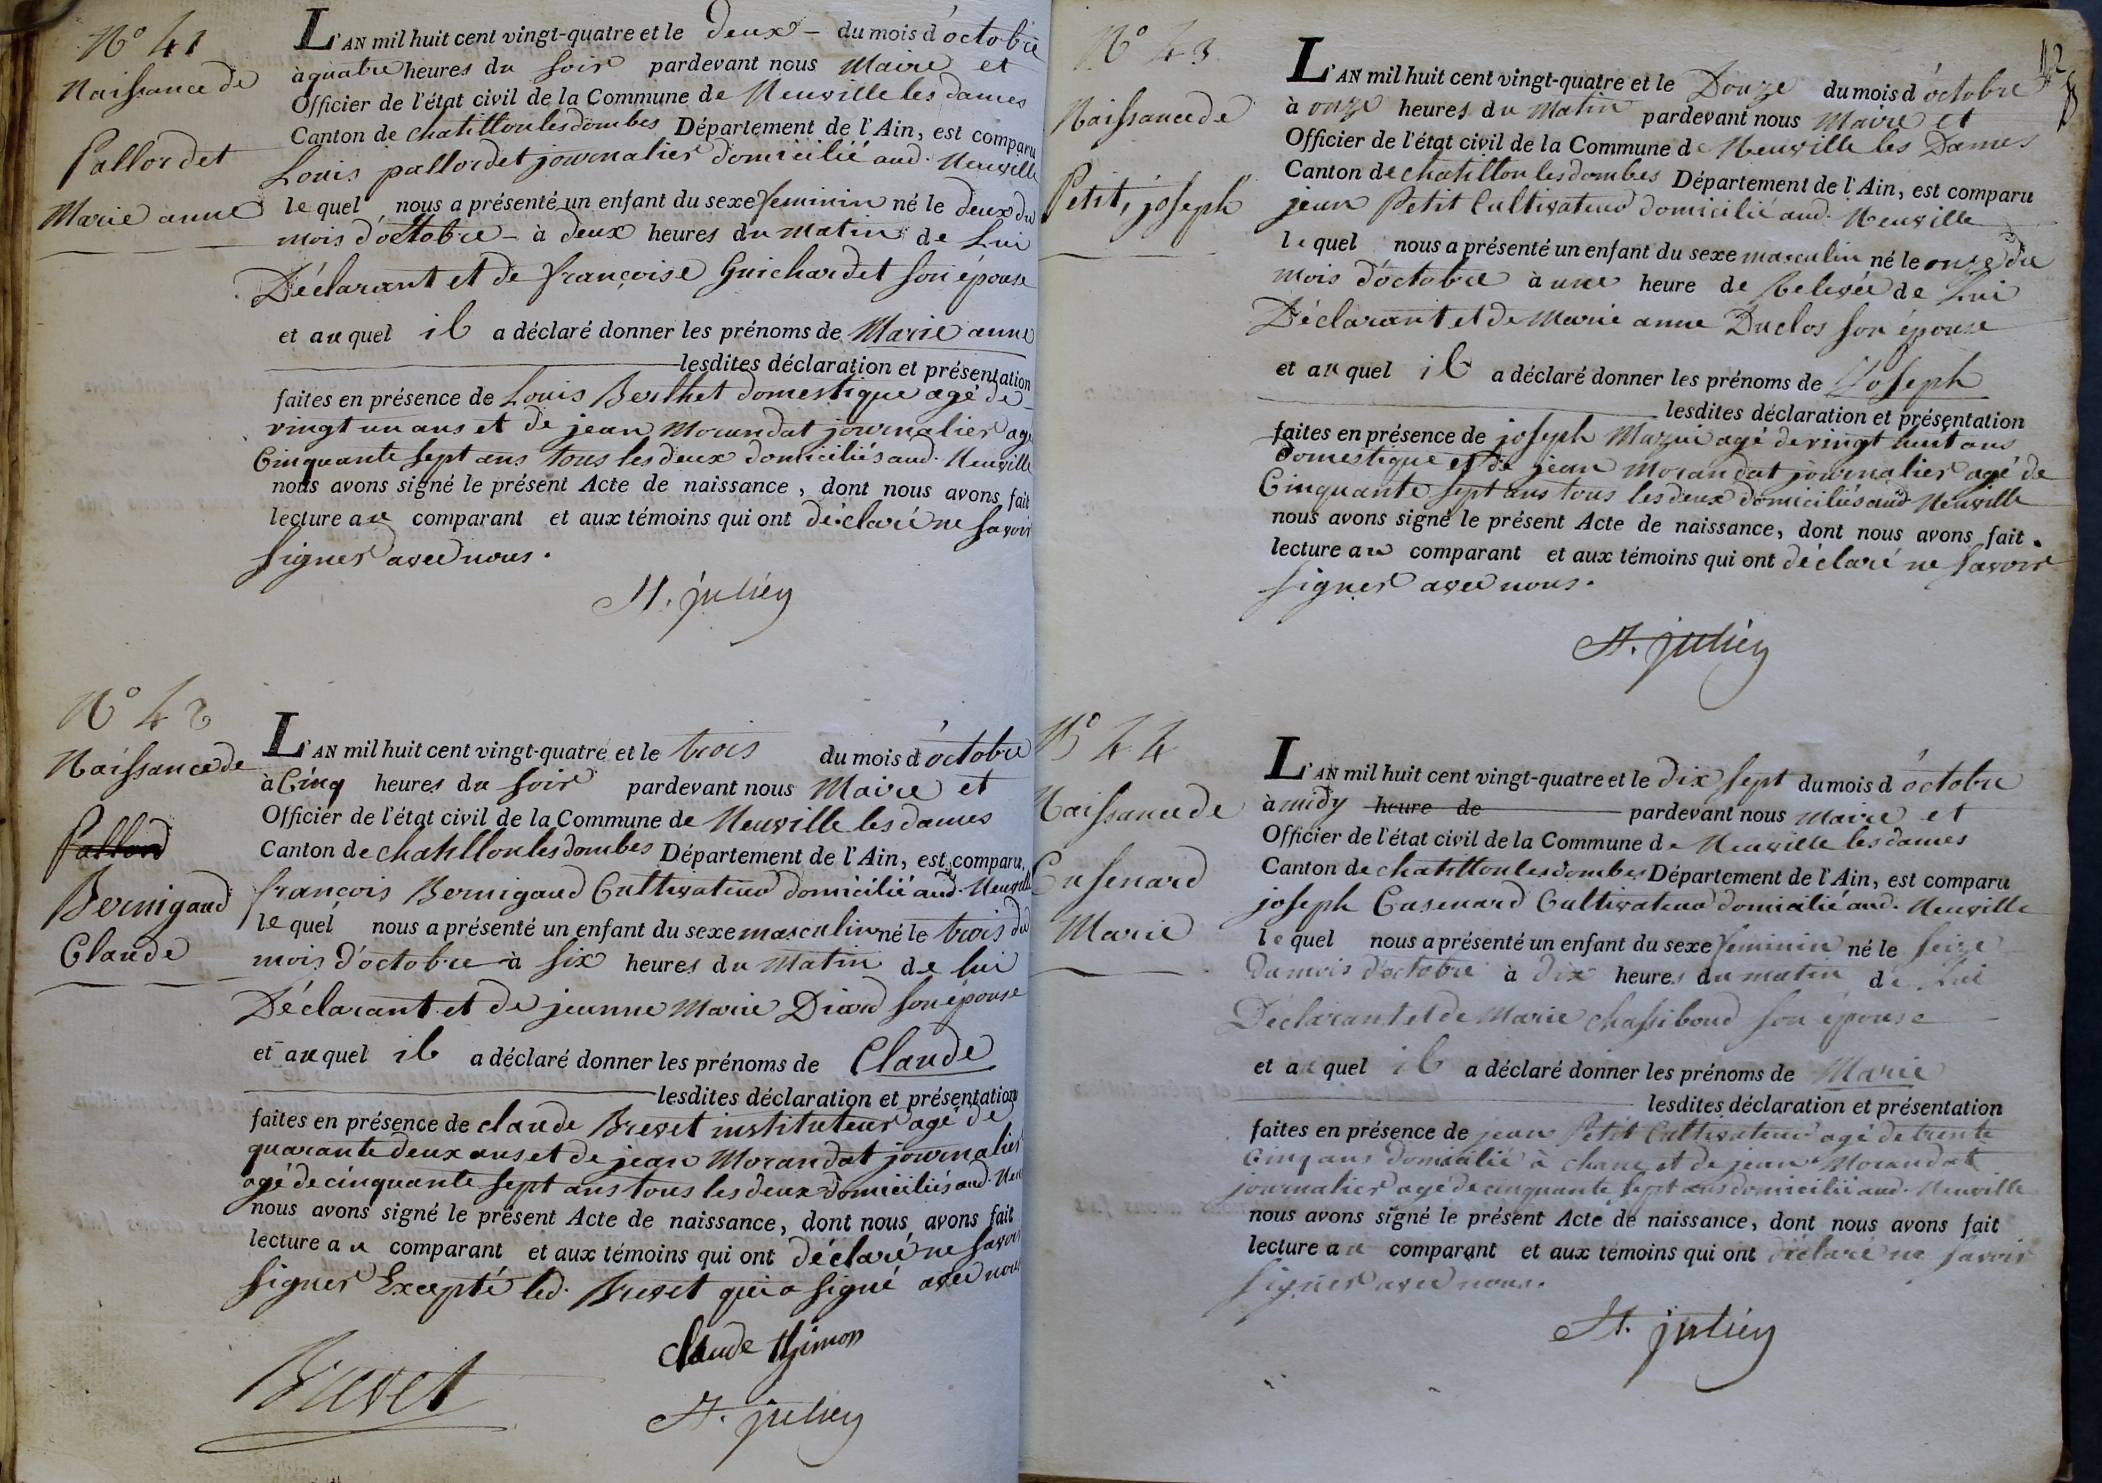 N° 41
Naissance de
Pallordet
Marie anne
L'AN mil huit cent vingt-quatre et le deux - du mois d'octobre
à quatre heures du soir pardevant nous Maire et
Officier de l'état civil de la Commune de Neuville les dames
Canton de chatillon les dombes Département de l'Ain, est comparu
Louis pallordet journalier domicilié aud. Neuville
lequel nous a présenté un enfant du sexe feminin né le deux du
mois d'octobre - à deux heures du matin de Lui
Déclarant et de françoise Guichardet son épouse
et auquel il a déclaré donner les prénoms de Marie anne
lesdites déclaration et présentation
faites en présence de Louis Berthet domestique agé de
vingt un ans et de jean Morandat journalier agé
Cinquante sept ans tous les deux domiciliés aud. Neuville
nous avons signé le présent Acte de naissance, dont nous avons fait
lecture au comparant et aux témoins qui ont déclaré ne savoir
signer avec nous.
St. julien
N° 42
Naissance de
Pallord
Bernigaud
Claude
L'AN mil huit cent vingt-quatre et le trois du mois d'octobre
à Cinq heures du soir pardevant nous Maire et
Officier de l'état civil de la Commune de Neuville les dames
Canton de chatillon les dombes Département de l'Ain, est comparu
françois Bernigaud Cultivateur domicilié aud. Neuville
lequel nous a présenté un enfant du sexe masculin né le trois du
mois d'octobre à six heures du matin de lui
Déclarant et de jeanne Marie Diard son épouse
et auquel il a déclaré donner les prénoms de Claude
lesdites déclaration et présentation
faites en présence de claude Brevet instituteur agé de
quarante deux ans et de jean Morandat journalier
agé de cinquante sept ans tous les deux domiciliés aud. Neu
nous avons signé le présent Acte de naissance, dont nous avons fait
lecture au comparant et aux témoins qui ont déclaré ne savoir
signer Excepté led. Brevet qui a signé avec nous
claude thimon
Brevet
St. julien
42
N° 43
Naissance de
Petit, joseph
L'AN mil huit cent vingt-quatre et le Douze du mois d'octobre
à onze heures du Matin pardevant nous Maire et
Officier de l'état civil de la Commune de Neuville les Dames
Canton de chatillon les dombes Département de l'Ain, est comparu
jean Petit Cultivateur domicilié aud. Neuville
lequel nous a présenté un enfant du sexe masculin né le onze du
mois d'octobre à une heure de Relevée de Lui
Déclarant et de Marie anne Duclos son épouse
et auquel il a déclaré donner les prénoms de Joseph
lesdites déclaration et présentation
faites en présence de joseph Mazui agé de vingt huit ans
domestique et de jean Morandat journalier agé de
Cinquante sept ans tous les deux domiciliés aud Neuville
nous avons signé le présent Acte de naissance, dont nous avons fait
lecture au comparant et aux témoins qui ont déclaré ne savoir
signer avec nous.
St. julien
N° 44
Naissance de
Cusenard
Marie
L'AN mil huit cent vingt-quatre et le dix sept du mois d'octobre
à midy heure de pardevant nous Maire et
Officier de l'état civil de la Commune de Neuville les dames
Canton de chatillon les dombes Département de l'Ain, est comparu
joseph Cusenard Cultivateur domicilié aud. Neuville
lequel nous a présenté un enfant du sexe feminin né le seize
du mois d'octobre à dix heures du matin de Lui
Déclarant et de Marie chassiboud son épouse
et auquel il a déclaré donner les prénoms de Marie
lesdites déclaration et présentation
faites en présence de jean Petit Cultivateur agé de trente
Cinq ans domicilié à chane et de jean Morandat
journalier agé de cinquante sept ans domicilié aud. Neuville
nous avons signé le présent Acte de naissance, dont nous avons fait
lecture au comparant et aux témoins qui ont déclaré ne savoir
signer avec nous.
St. julien